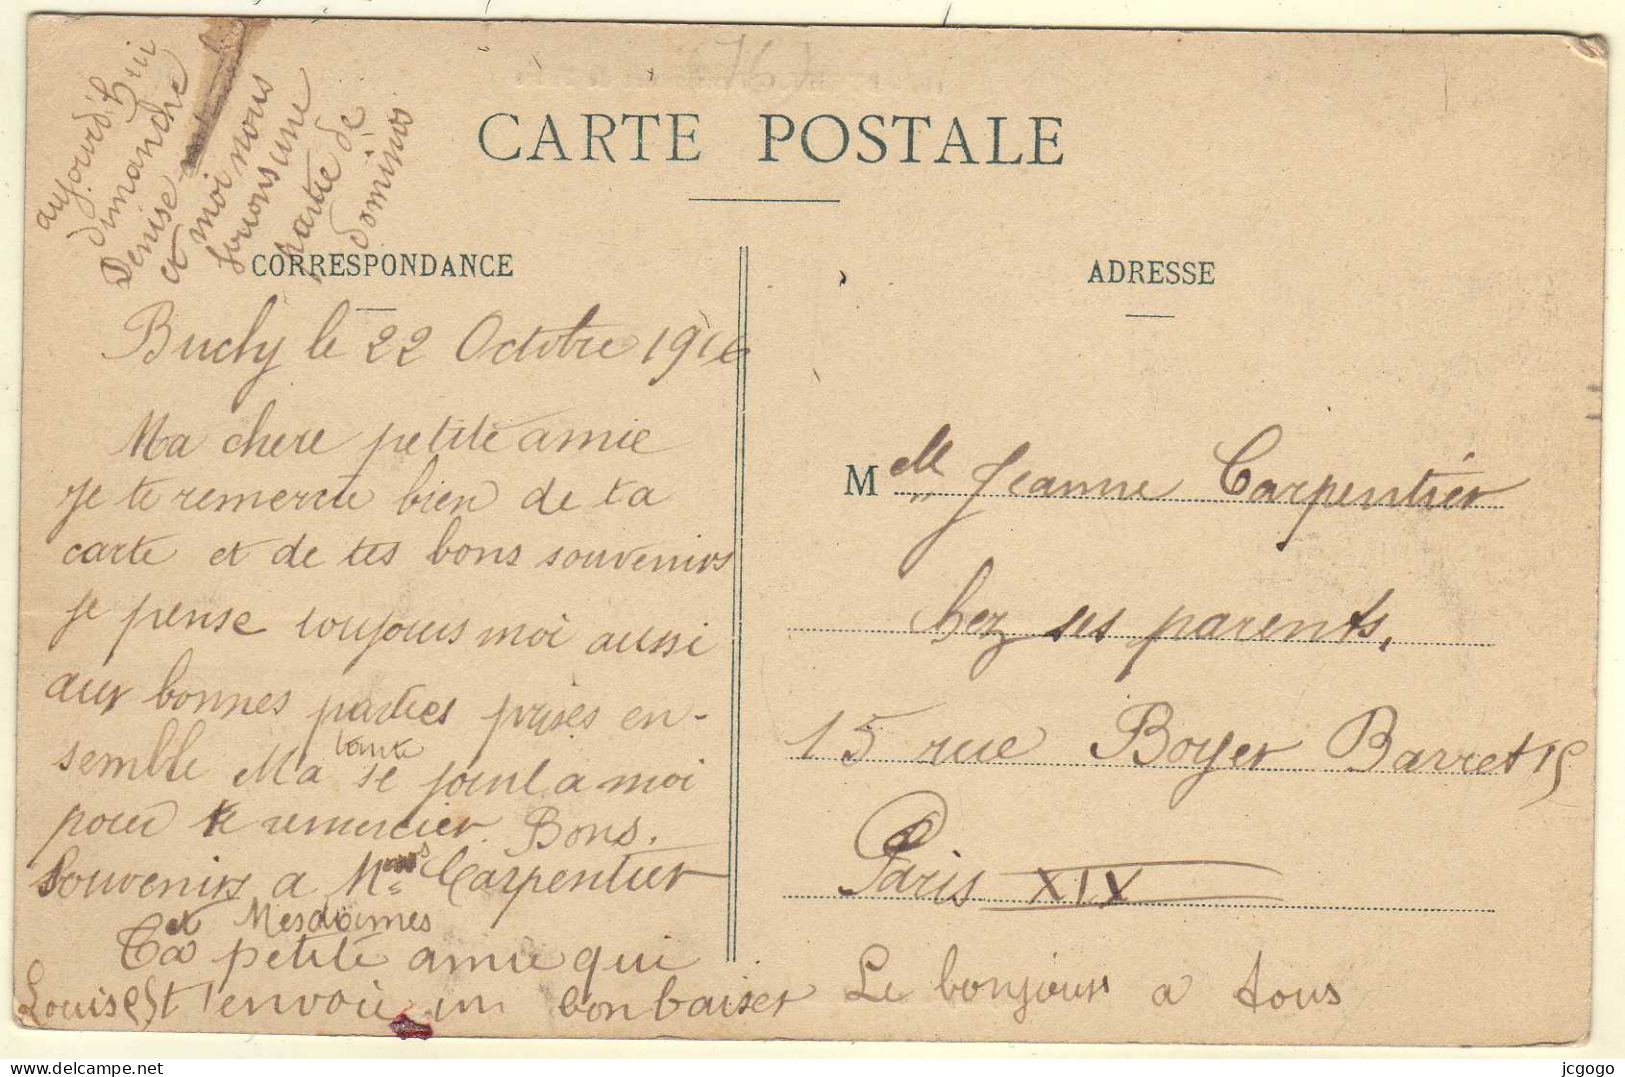 aujourd'hui
dimanche
Denise
et moi nous
ferons une
partie de
dominos
CARTE POSTALE
CORRESPONDANCE
Buchy le 22 Octobre 1916
Ma chere petite amie
je te remercie bien de ta
carte et de tes bons souvenirs
je pense toujours moi aussi
aux bonnes parties prises en-
semble Ma tante se joint a moi
pour te remercier. Bons.
Souvenirs a Mrs Carpentier
et Mesdames
Ta petite amie qui
t'envoie un bon baiser
Louise
ADRESSE
Melle Jeanne Carpentier
chez ses parents,
15 rue Boyer Barret 15
Paris XIX
Le bonjour a tous
jcgogo